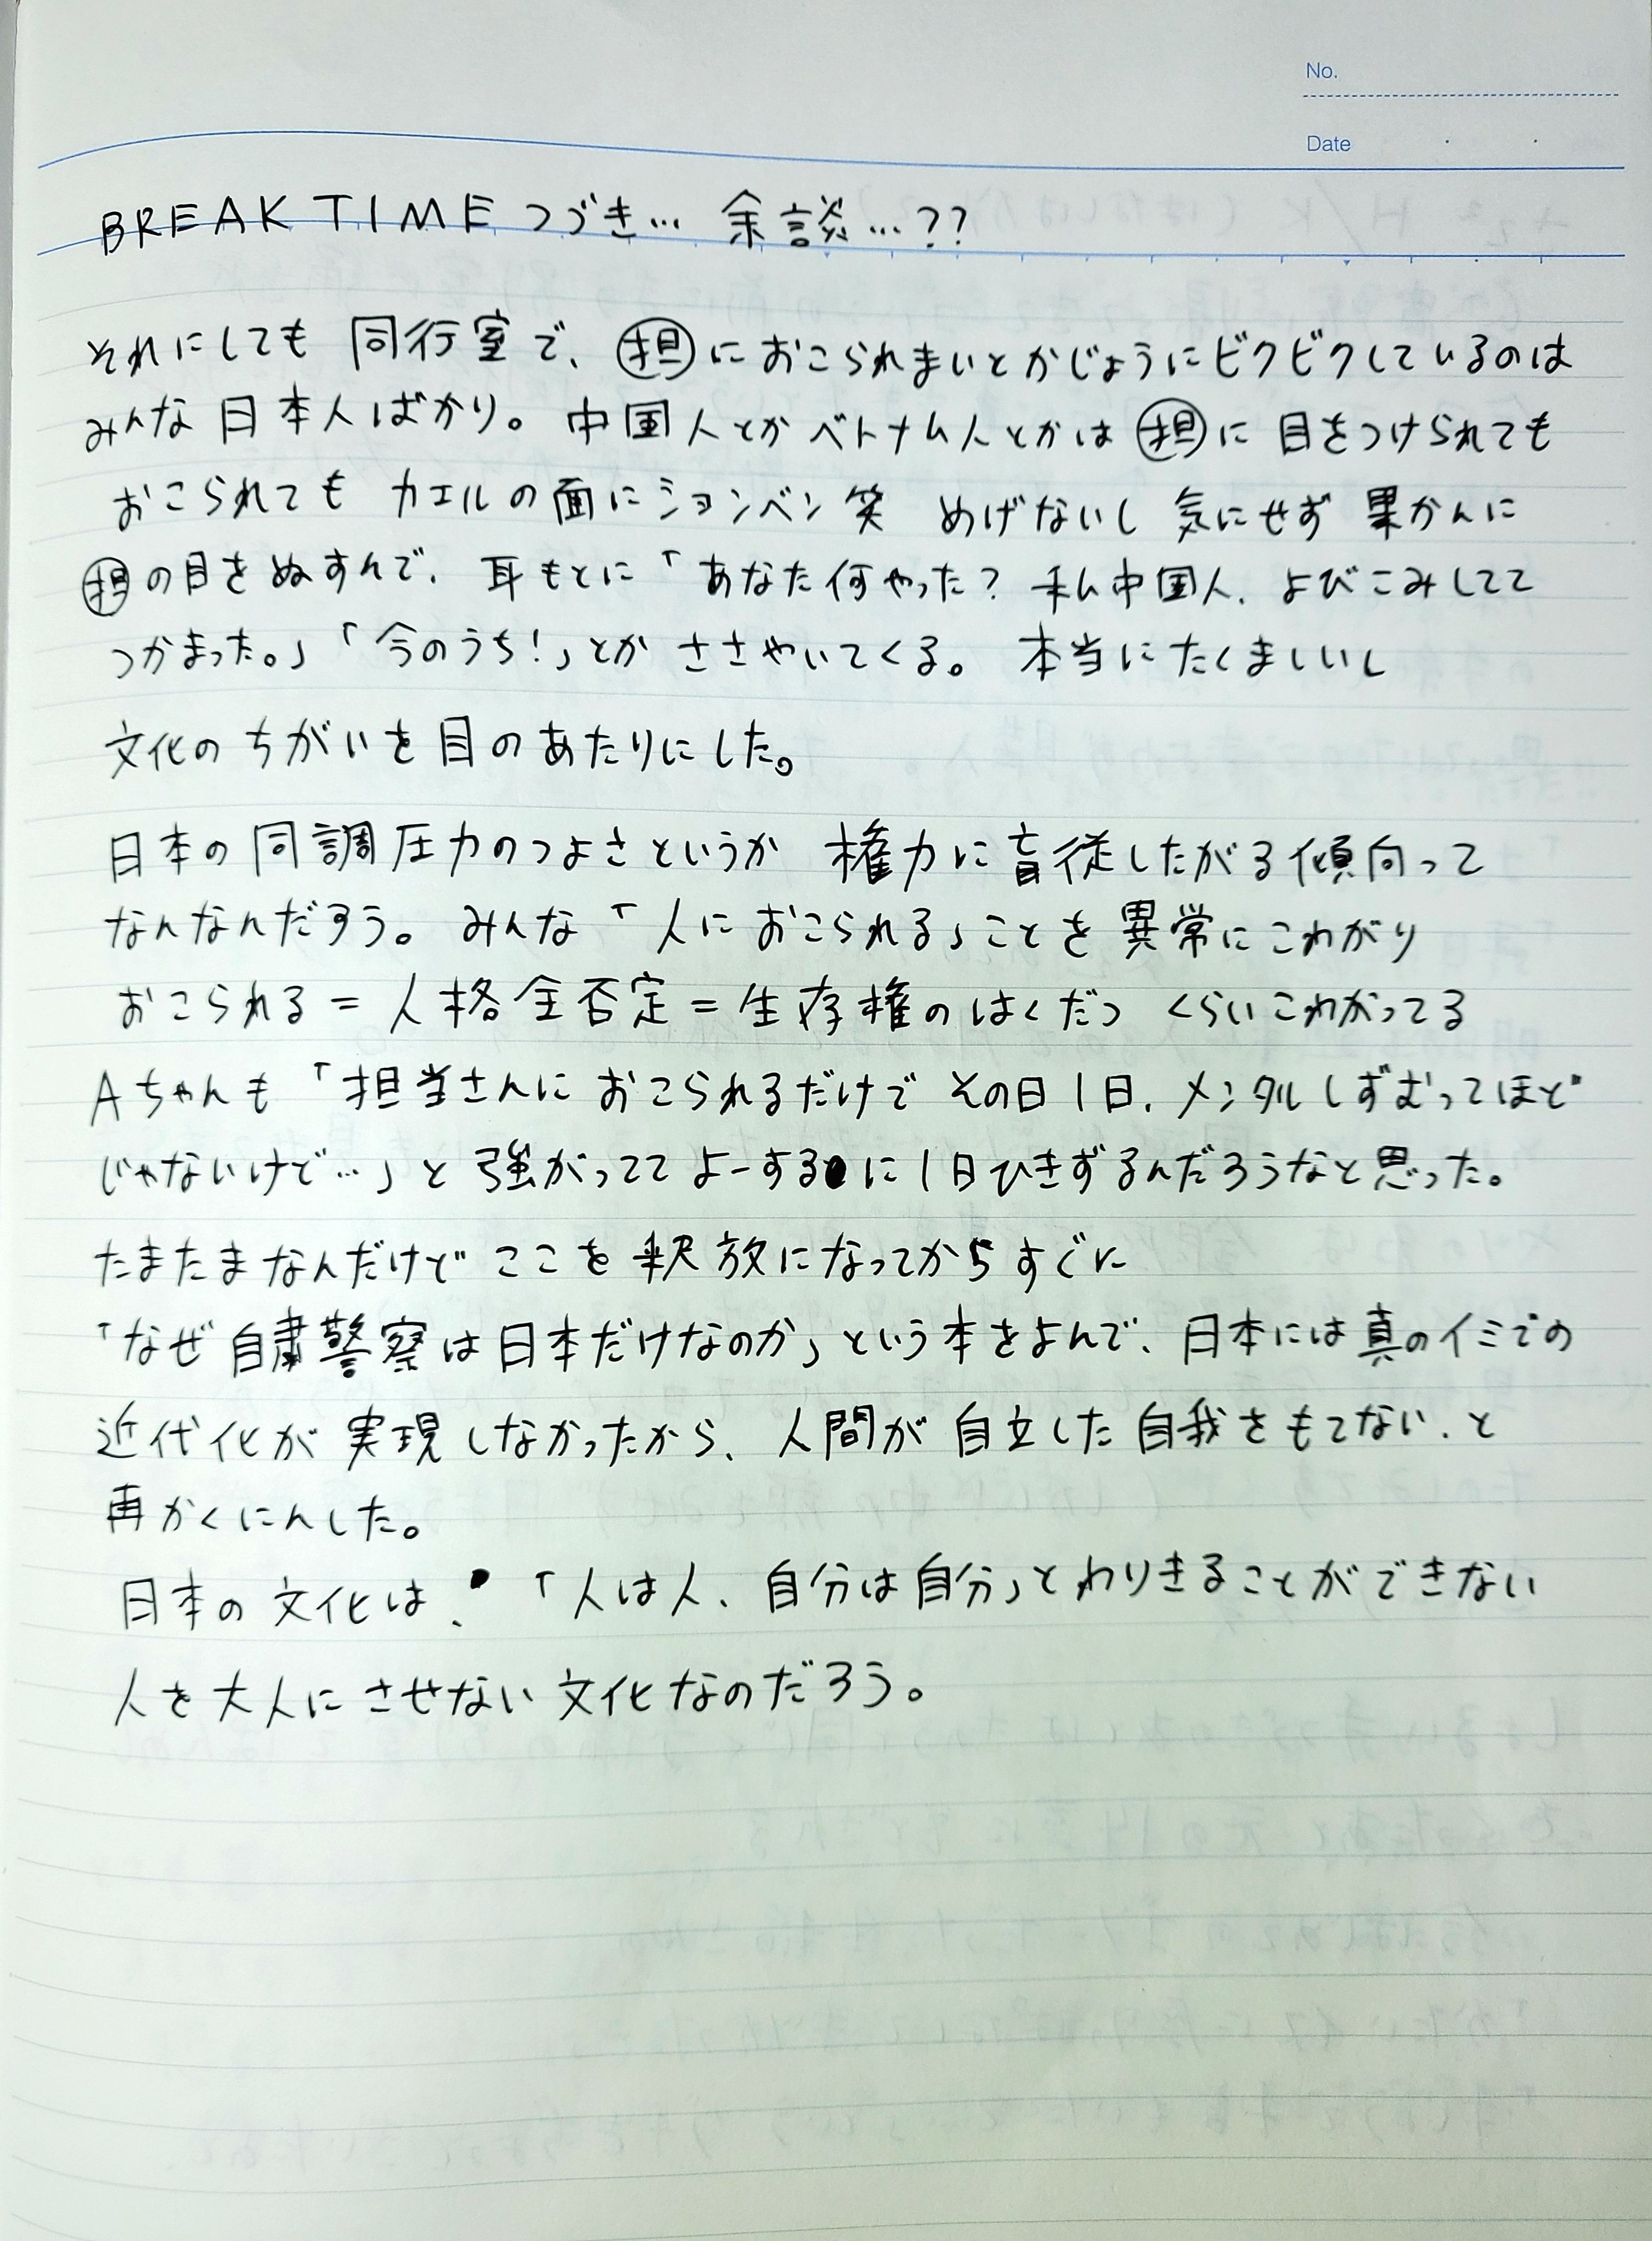 No.
Date
BREAK TIME つづき… 余談…??
それにしても 同行室で、㊐におこられまいとかじょうにビクビクしているのは
みんな 日本人ばかり。中国人とかベトナム人とかは 担に 目をつけられても
おこられても カエルの面にションベン笑 めげないし 気にせず 果かんに
担の目をぬすんで、耳もとに「あなた何やった? 私中国人、よびこみしてて
つかまった。」「今のうち!」とか ささやいてくる。 本当にたくましいし
文化のちがいを目のあたりにした。
日本の同調圧力のつよさというか 権力に盲従したがる傾向って
なんなんだろう。みんな「人におこられる」ことを異常にこわがり
おこられる=人格全否定=生存権のはくだつ くらいこわがってる
Aちゃんも「担当さんに おこられるだけで その日1日、メンタルしずむってほど
じゃないけど…」と 強がってて よーするに1日ひきずるんだろうなと思った。
たまたまなんだけど ここを釈放になってからすぐに
「なぜ自粛警察は日本だけなのか」という本をよんで、日本には真のイミでの
近代化が実現しなかったから、人間が自立した自我をもてない、と
再かくにんした。
日本の文化は、「人は人、自分は自分」とわりきることができない
人を大人にさせない文化なのだろう。